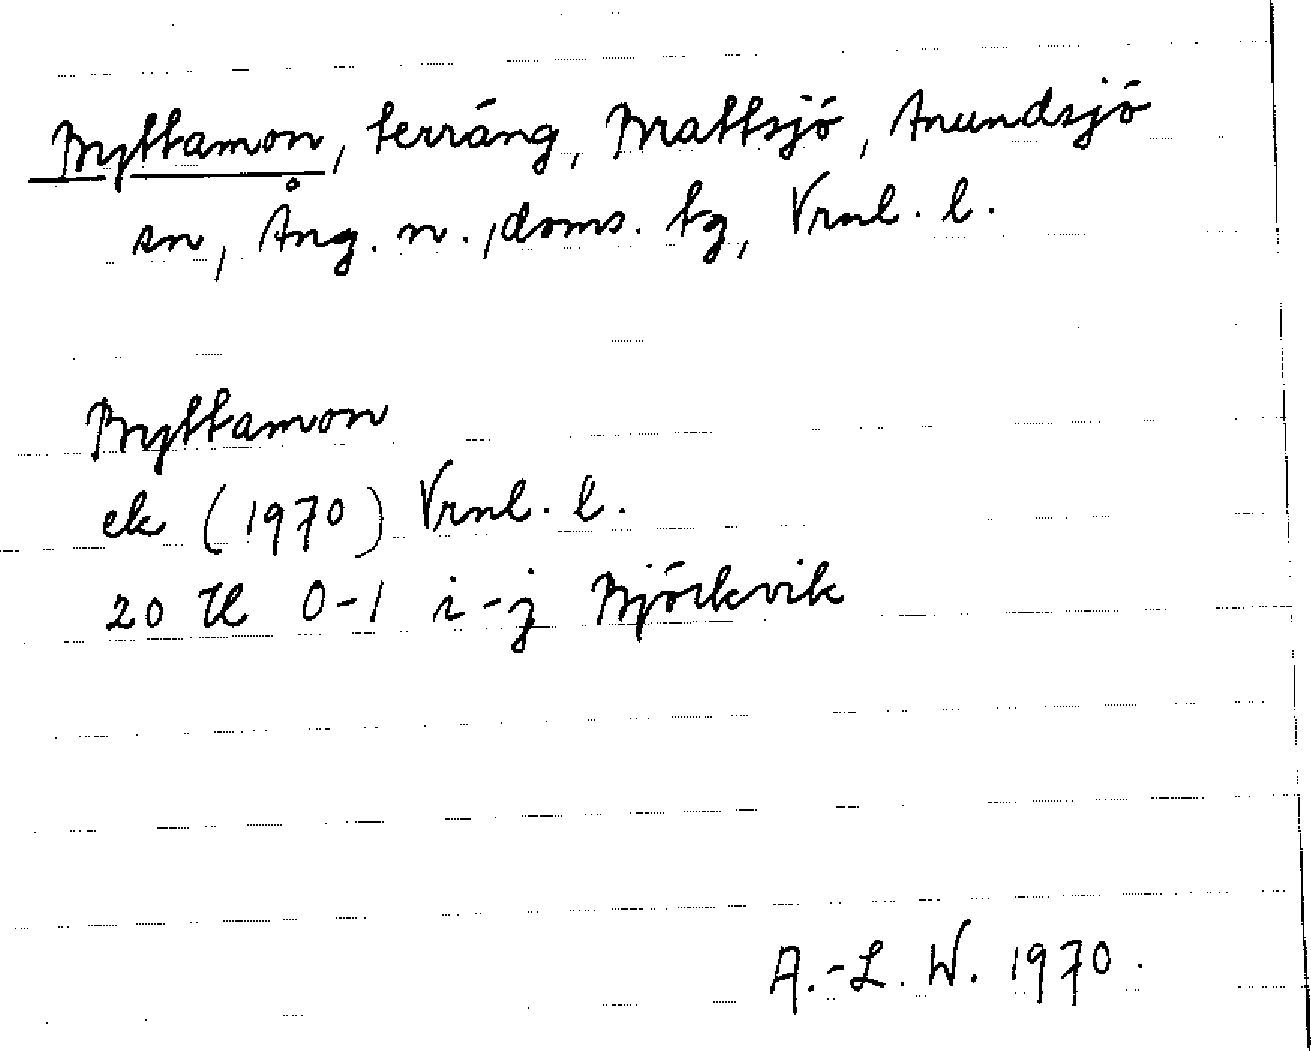 Bryttamon, terräng, Brattsjö, Anundsjö
sn, Ång. n., doms. tg, Vrnl. l.
Bryttamon
ek (1970) Vrnl. l.
20 H 0-1 i-j Björkvik
A.-L. W. 1970.